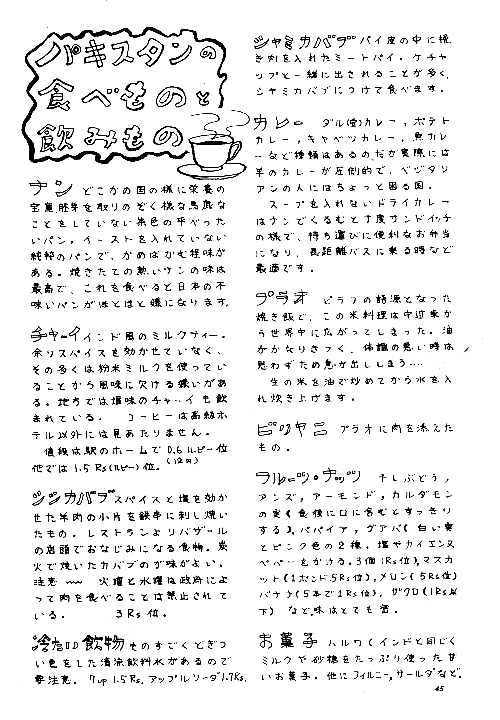 パキスタンの
食べものと
飲みもの
ナン どこかの国の様に栄養の
宝庫胚芽を取りのぞく様な馬鹿な
ことをしていない茶色の平べった
いパン。イーストを入れていない
純粋のパンで、かめばかむ程味が
ある。焼きたての熱いナンの味は
最高で、これを食べると日本の不
味いパンがほとほと嫌になります。
チャーイ インド風のミルクティー。
余りスパイスを効かせていなく、
その多くは粉末ミルクを使ってい
ることから風味に欠ける嫌いがあ
る。地方では塩味のチャーイも飲
まれている。 コーヒーは高級ホ
テル以外には見あたりません。
値段は駅のホームで0.6ルピー位
他では1.5Rs(ルピー)位。
シシカバブ スパイスと塩を効か
せた羊肉の小片を鉄串に刺し焼い
たもの。レストランよりバザール
の店頭でおなじみになる食物。炭
火で焼いたカバブのが味がよい。
注意 〜〜 火曜と水曜は政府によ
って肉を食べることは禁止されて
いる。 3Rs位。
冷たい飲物 ものすごくどぎつ
い色をした清涼飲料水があるので
要注意。7up 1.5Rs, アップルソーダ1.7Rs.
シャミカバブ パイ皮の中に挽
き肉を入れたミートパイ。ケチャ
ップと一緒に出されることが多く、
シャミカバブにつけて食べます。
カレー ダル(豆)カレー、ポテト
カレー、キャベツカレー、魚カレ
ーなど種類はあるのだが実際には
羊のカレーが圧倒的で、ベジタリ
アンの人にはちょっと困る国。
スープを入れないドライカレー
はナンでくるむと丁度サンドイッチ
の様で、持ち運びに便利なお弁当
になり、長距離バスに乗る時など
最適です。
プラオ ピラフの語源となった
焼き飯で、この米料理は中近東か
ら世界中に広がってしまった。油
がかなりきつく、体調の悪い時は
思わずため息が出てしまう....
生の米を油で炒めてから水を入
れ炊き上げます。
ビリヤニ プラオに肉を添えた
もの。
フルーツ・ナッツ 干しぶどう,
アンズ, アーモンド, カルダモン
の実(食後に口に含むとすっきり
する), パパイア, グアバ(白い実
とピンク色の2種。塩やカイエンヌ
ペペーをかける。3個1Rs位), マスカ
ット(1ポンド5Rs位), メロン(5Rs位)
バナナ(5本で1Rs位), ザクロ(1Rs以
下) など。味はとても善。
お菓子 ハルワ(インドと同じく
ミルクや砂糖をたっぷり使った甘
いお菓子。他にフィルニー, サールダなど。
45